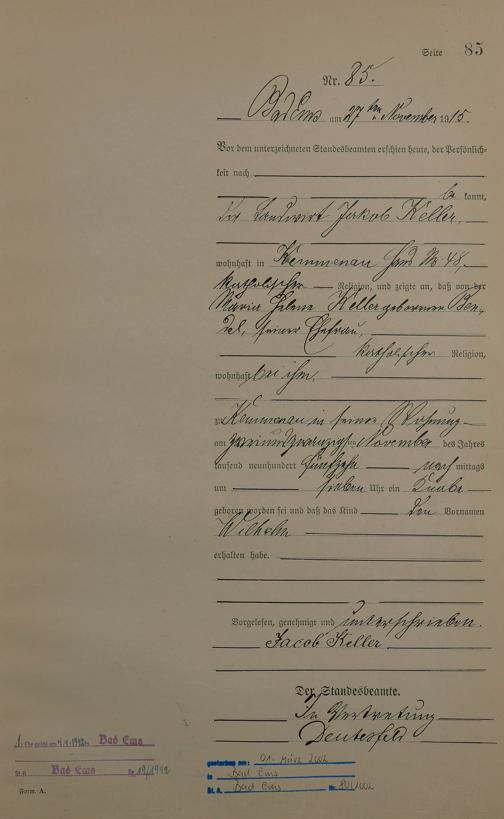 Seite 85
Nr. 85.
Bad Ems am 27ten November 1915.
Vor dem unterzeichneten Standesbeamten erschien heute, der Persönlich-
keit nach
be kannt,
der Landwirt Jakob Keller,
wohnhaft in Kemmenau Haus No 48,
katholischer Religion, und zeigte an, daß von der
Maria Helene Keller geborenen Ben-
del, seiner Ehefrau,
katholischer Religion,
wohnhaft bei ihm,
zu Kemmenau in seiner Wohnung
am zweiundzwanzigsten November des Jahres
tausend neunhundert fünfzehn nach mittags
um sieben Uhr ein Knabe
geboren worden sei und daß das Kind den Vornamen
Wilhelm
erhalten habe.
Vorgelesen, genehmigt und unterschrieben.
Jacob Keller
Der Standesbeamte.
In Vertretung
1. Bad Ems
St.A. Bad Ems Nr. 19/1942
gestorben am: 01. März 2002
in Bad Ems
St. A. Bad Ems Nr.
Form. A.